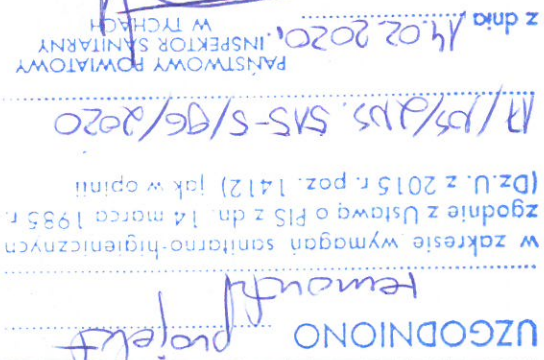 UZGODNIONO projekt
remontu
w zakresie wymagań sanitarno-higienicznych
zgodnie z Ustawą o PIS z dn. 14 marca 1985 r.
(Dz.U. z 2015 r. poz. 1412) jak w opinii
17/NS/ZNS. SAS-S/96/2020
z dnia 14.02.2020,
PAŃSTWOWY POWIATOWY
INSPEKTOR SANITARNY
W TYCHACH